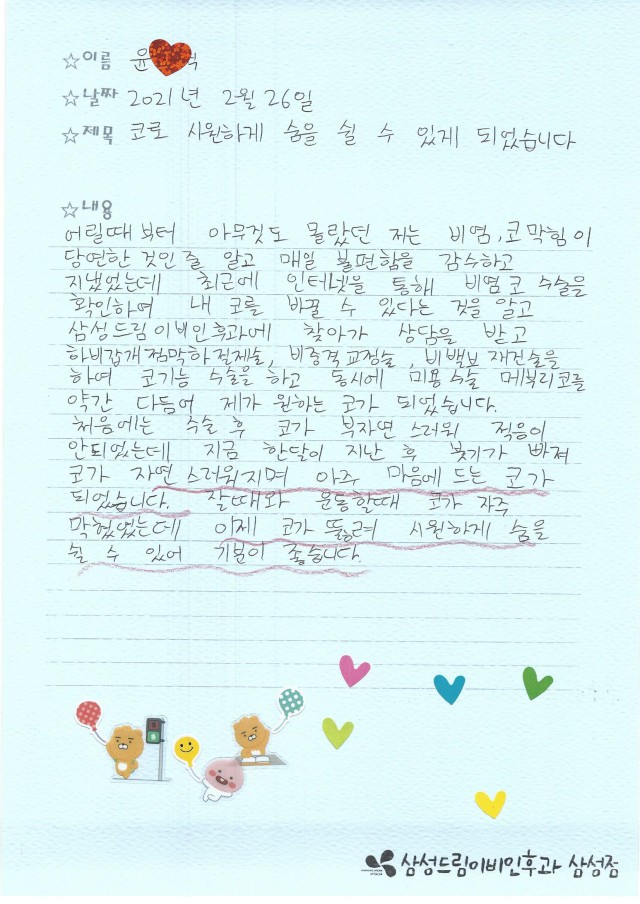 ☆이름 윤 석
☆날짜 2021년 2월 26일
☆제목 코로 시원하게 숨을 쉴 수 있게 되었습니다
☆내용
어릴때부터 아무것도 몰랐던 저는 비염, 코막힘이
당연한 것인 줄 알고 매일 불편함을 감수하고
지냈었는데 최근에 인터넷을 통해 비염코 수술을
확인하여 내 코를 바꿀 수 있다는 것을 알고
삼성드림이비인후과에 찾아가 상담을 받고
하비갑개점막하절제술, 비중격교정술, 비밸브재건술을
하여 코기능 수술을 하고 동시에 미용수술 메부리코를
약간 다듬어 제가 원하는 코가 되었습니다.
처음에는 수술 후 코가 부자연스러워 적응이
안되었는데 지금 한달이 지난 후 붓기가 빠져
코가 자연스러워지며 아주 마음에 드는 코가
되었습니다. 잘때와 운동할때 코가 자주
막혔었는데 이제 코가 뚫려 시원하게 숨을
쉴 수 있어 기분이 좋습니다.
삼성드림이비인후과 삼성점